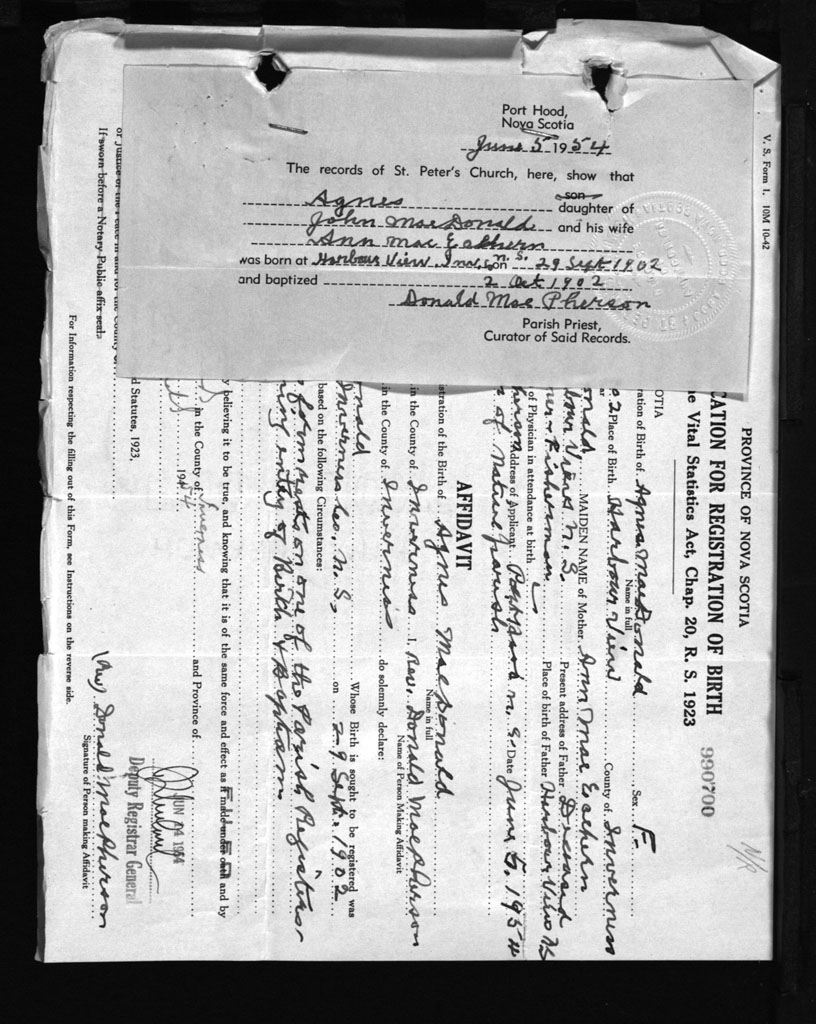 Port Hood,
Nova Scotia
June 5 1954
The records of St. Peter's Church, here, show that
Agnes son
daughter of
John MacDonald and his wife
Ann MacEachern
was born at Harbour View Inv. Co. N.S. on 29 Sept 1902
and baptized 2 Oct 1902
Donald MacPherson
Parish Priest,
Curator of Said Records.
V. S. Form 1. 10M 10-42
PROVINCE OF NOVA SCOTIA
CATION FOR REGISTRATION OF BIRTH
e Vital Statistics Act, Chap. 20, R. S. 1923
990700
N/R
OTIA
ration of Birth of Agnes MacDonald Sex F.
Name in full
02 Place of Birth Harbour View County of Inverness
onald MAIDEN NAME of Mother Ann MacEachern
bour View N. S. Present address of Father Deceased
er & Fisherman Place of birth of Father Harbour View NS
of Physician in attendance at birth
herson Address of Applicant Port Hood N. S. Date June 5. 1954
of Native parish
AFFIDAVIT
stration of the Birth of Agnes MacDonald
Name in full
in the County of Inverness I, Rev. Donald MacPherson
Name of Person Making Affidavit
in the County of Inverness do solemnly declare:
onald Whose Birth is sought to be registered was
Inverness Co. N. S. on 29 Sept. 1902
based on the following Circumstances:
form rests on one of the Parish Register
entry of Birth & Baptism
y believing it to be true, and knowing that it is of the same force and effect as if made under oath and by
in the County of Inverness and Province of
JUN 14
Deputy Registrar General
d Statutes, 1923,
(Rev) Donald MacPherson
Signature of Person making Affidavit
or Justice of the Peace in and for the County of
If sworn before a Notary Public affix seal.
For Information respecting the filling out of this Form, see Instructions on the reverse side.